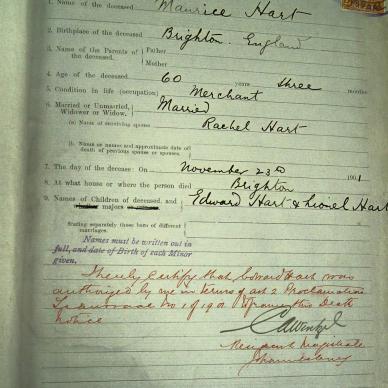 1. Name of the deceased Maurice Hart
2. Birthplace of the deceased Brighton. England
3. Name of the Parents of the deceased. Father
Mother
4. Age of the deceased 60 years three months
5. Condition in life (occupation) Merchant
6. Married or Unmarried, Widower or Widow, Married
(a) Name of surviving spouse Rachel Hart
(b) Names or names and approximate date of death of previous spouse or spouses.
7. The day of the decease: On November 23rd 1901
8. At what house or where the person died Brighton
9. Names of Children of deceased, and majors Edward Hart & Lionel Hart
Stating separately those born of different marriages.
Names must be written out in
full, and date of Birth of each Minor
given.
I hereby certify that Edward Hart was
authorised by me in terms of art 2 Proclamation
Transvaal No. 1 of 1901 to frame this Death
Notice
Resident Magistrate
Johannesburg